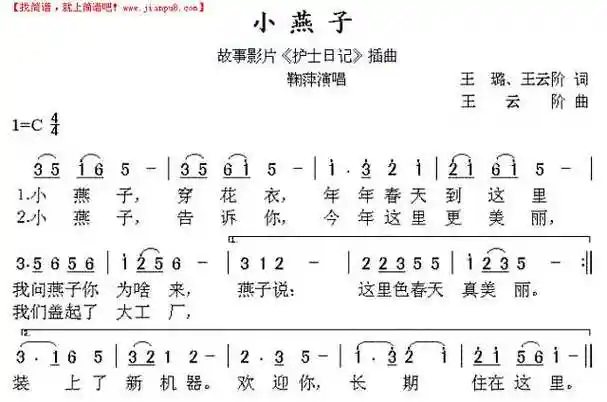 【找简谱，就上简谱吧! www.jianpu8.com】
小燕子
故事影片《护士日记》插曲
鞠萍演唱
王 璐、王云阶 词
王 云 阶 曲
1=C 4/4
3 5 1 6 5 - | 3 5 1 6 5 - | 1 · 3 2 1 | 2 1 6 1 5 - |
1.小 燕 子， 穿 花 衣， 年 年春天到 这 里
2.小 燕 子， 告 诉 你， 今 年这里更 美 丽，
1.
3 · 5 6 5 6 | 1 2 5 - | 3 1 2 - | 2 2 3 5 5 | 1 2 3 5 - :||
我问燕子你 为啥 来， 燕子说： 这里色春天 真美 丽。
我们盖起了 大工 厂，
2.
3 · 1 6 5 | 3 2 1 2 - | 3 1 2 - | 3 · 5 | 2 1 5 6 1 - |
装 上了 新 机器。 欢迎你， 长 期 住在 这 里。